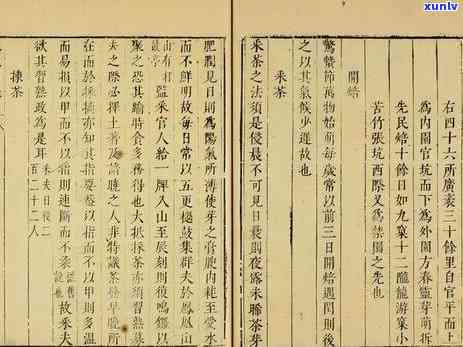 xunlv
右四十六所廣袤三十餘里自官平而上
為內園官坑而下為外園方春靈芽萌坼
先民焙十餘日如九窠十二隴龍游窠小
苦竹張坑西際又為禁園之先也
開焙
驚蟄節萬物始萌每歲常以前三日開焙遇閏則後
之以其氣候少遲故也
采茶
采茶之法須是侵晨不可見日晨則夜露未晞茶芽
肥潤見日則為陽氣所薄使芽之膏腴內耗至受水
而不鮮明故每日常以五更撾鼓集群夫於鳳凰山
山有打鼓亭
監采官人給一牌入山至辰刻則復鳴鑼以
聚之恐其踰時貪多務得也大抵採茶亦須習熟募
夫之際必擇土著及諳曉之人非特識茶發早晚所
在而於採摘亦知其指要蓋以指而不以甲則多溫
而易損以甲而不以指則速斷而不柔
從舊說也
故采夫
欲其習熟政為是耳
采夫日役二百二十二人
揀茶